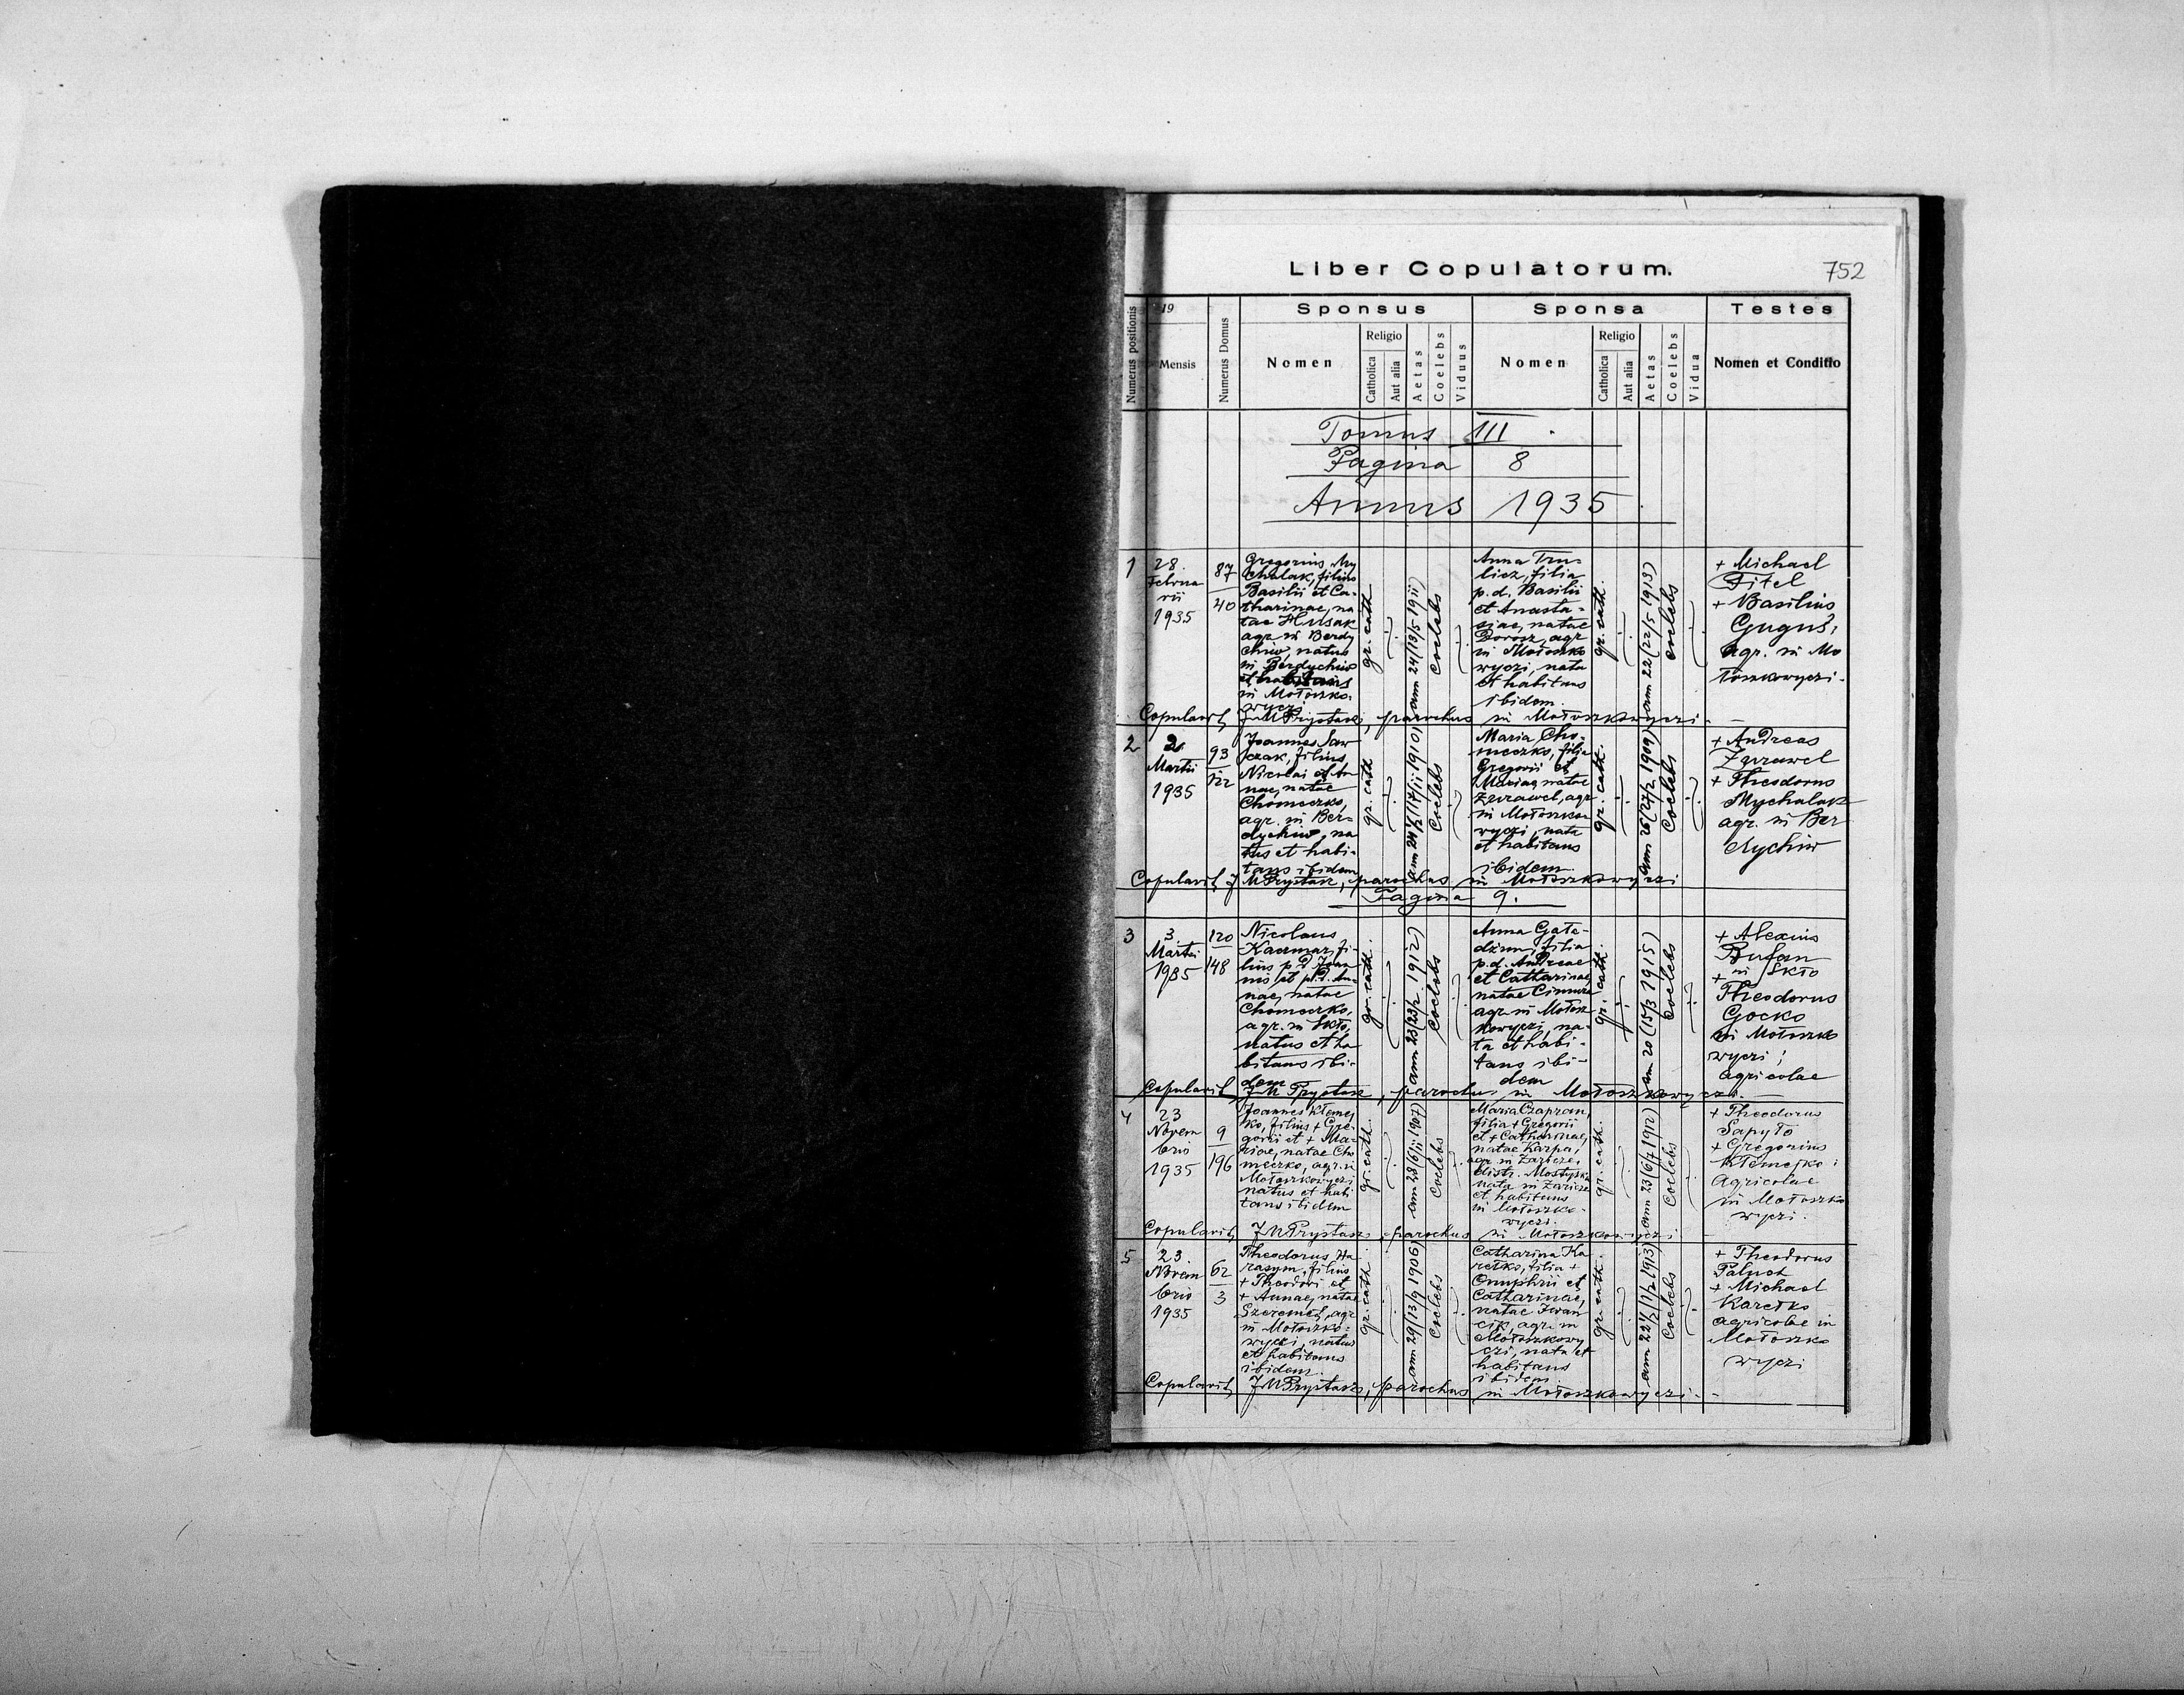 Liber Copulatorum.
752
Numerus positionis
19
Mensis
Numerus Domus
Sponsus
Nomen
Religio
Catholica
Aut alia
Aetas
Coelebs
Viduus
Sponsa
Nomen
Religio
Catholica
Aut alia
Aetas
Coelebs
Vidua
Testes
Nomen et Conditio
Tomus III.
Pagina 8
Annus 1935
1
28.
Februa
rii
1935
87
40
Gregorius My
chalak, filius
Basilii et Ca-
tharinae, na
tae Husak
agr. in Berdy
chiw, natus
in Berdychiw
et habitans
in Mołoszko-
wyczi
gr. cath.
ann 24 (13/5 1911)
Coelebs
Anna Tru-
licz, filia
p. d. Basilii
et Anasta-
siae, natae
Dorosz, agr
in Mołoszko
wyczi, nata
et habitans
ibidem.
gr. cath.
ann 22 (22/5 1913)
Coelebs
+ Michael
Fitel
+ Basilius
Guguś,
agr. in Mo
łoszkowyczi.
Copulavit J M Prystasz, parochus in Mołoszkowyczi.
2
2
Martii
1935
93
122
Joannes Saw
czak, filius
Nicolai et An
nae, natae
Chomeczko,
agr. in Ber-
dychiw, na
tus et habi-
tans ibidem
gr. cath
ann 24 1/2 (17/11 1910)
Coelebs
Maria Cho-
meczko, filia
Gregorii et
Mariae, natae
Żurawel, agr
in Mołoszko
wyczi, nata
et habitans
ibidem.
gr. cath.
ann 26 (27/2 1909)
Coelebs
+ Andreas
Żurawel
+ Theodorus
Mychalak
agr. in Ber
dychiw
Copulavit J M Prystasz, parochus in Mołoszkowyczi
Pagina 9.
3
3
Martii
1935
120
148
Nicolaus
Kaczmar, fi-
lius p. d. Joan
nis et p. d. An-
nae, natae
Chomeczko,
agr. in Skło,
natus et ha
bitans ibi-
dem
gr. cath.
ann 23 (23/2 1912)
Coelebs
Anna Gała-
dżun, filia
p. d. Andreae
et Catharinae,
natae
agr. in Mołosz
kowyczi, na-
ta et habi-
tans ibi-
dem
gr. cath.
ann 20 (15/3 1915)
Coelebs
+ Alexius
Bufan
in Skło
+
Theodorus
Gocko
in Mołoszko
wyczi;
agricolae
Copulavit J M Prystasz, parochus in Mołoszkowyczi.
4
23
Novem
bris
1935
9
196
Joannes Kłemej
ko, filius + Gre-
gorii et + Ma-
riae, natae Cho
meczko, agr. in
Mołoszkowyczi
natus et habi
tans ibidem
gr. cath.
ann 28 (6/11 1907)
Coelebs
Maria Czapran,
filia + Gregorii
et + Catharinae,
natae Karpa,
agr. in Zaricze,
distr. Mostyska
nata in Zaricze
et habitans
in Mołoszko-
wyczi.
gr. cath.
ann 23 (6/7 1912)
Coelebs
+ Theodorus
Sapyło
+ Gregorius
Kłemejko;
Agricolae
in Mołoszko
wyczi.
Copulavit J M Prystasz parochus in Mołoszkowyczi
5
23.
Novem
bris
1935
62
3
Theodorus Ha
rasym, filius
+ Theodori et
+ Annae, natae
Szeremet, agr
in Mołoszko-
wyczi, natus
et habitans
ibidem.
gr. cath
ann 29 (13/9 1906)
Coelebs
Catharina Ka
retko, filia +
Onuphrii et
Catharinae,
natae Iwan
cik, agr. in
Mołoszkowy
czi, nata et
habitans
ibidem.
gr. cath
Coelebs
+ Theodorus
Paluch
+ Michael
Karetko
agricolae in
Mołoszko
wyczi
Copulavit J M Prystasz, parochus in Mołoszkowyczi.